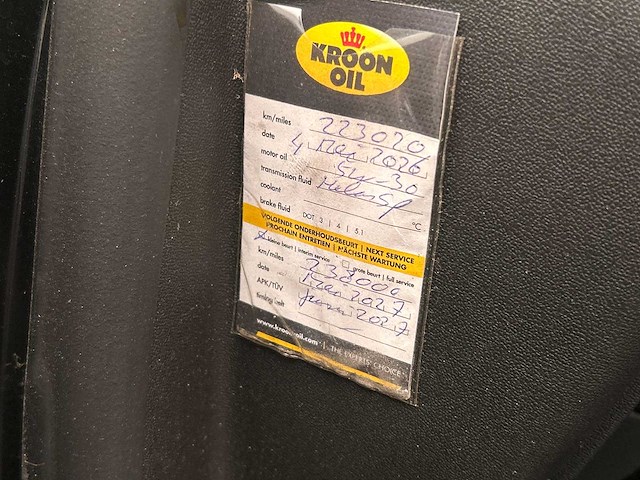 KROON
OIL
km/miles 223020
date 4 Mei 2026
motor oil 5W-30
transmission fluid Helix SP
coolant °C
brake fluid DOT 3 | 4 | 5.1
VOLGENDE ONDERHOUDSBEURT | NEXT SERVICE
PROCHAIN ENTRETIEN | NÄCHSTE WARTUNG
kleine beurt | interim service grote beurt | full service
km/miles 238000
date 2027
APK/TÜV 2027
timing belt
www.kroon-oil.com | THE EXPERTS' CHOICE